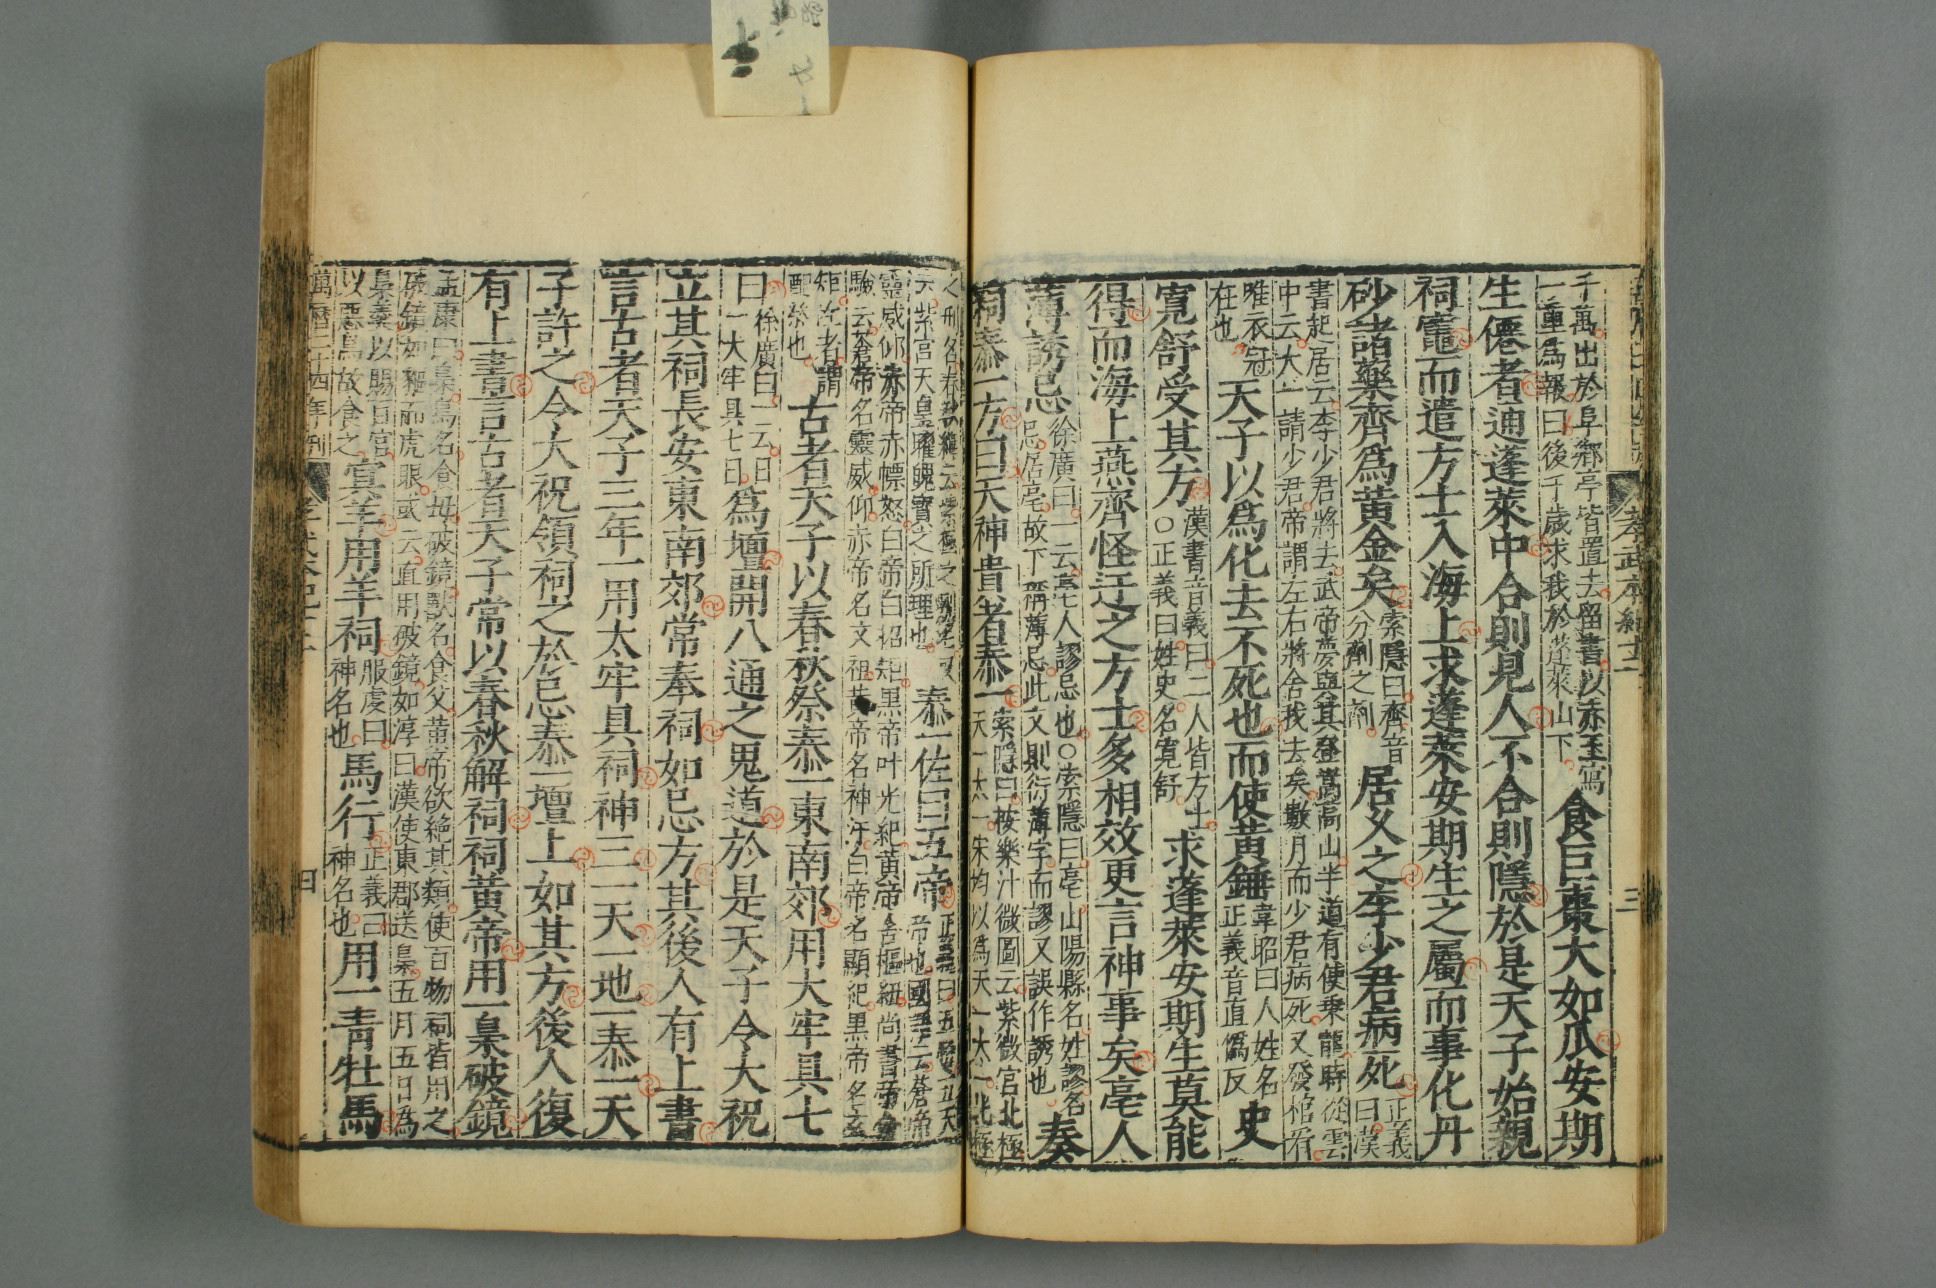 孝武本紀十二
三
千萬出於阜鄉亭皆置去留書以赤玉舄
一重爲報曰後千歲求我於蓬萊山下
食巨棗大如瓜安期
生僊者通蓬萊中合則見人不合則隱於是天子始親
祠竈而遣方士入海上求蓬萊安期生之屬而事化丹
砂諸藥齊爲黃金矣
索隱曰齊音
分劑之劑
居久之李少君病死
正義
曰漢
書起居云李少君將去武帝夢與其登嵩高山半道有使乘龍時從雲
中云大一請少君帝謂左右將舍我去矣數月而少君病死又發棺看
唯衣冠
在也
天子以爲化去不死也而使黃錘
韋昭曰人姓名
正義音直僞反
史
寬舒受其方
漢書音義曰二人皆方士
○正義曰姓史名寬舒
求蓬萊安期生莫能
得而海上燕齊怪迂之方士多相效更言神事矣亳人
薄誘忌
徐廣曰一云亳人謬忌也○索隱曰亳山陽縣名姓謬名
忌居亳故下稱薄忌此文則衍薄字而謬又誤作誘也
奏
祠泰一方曰天神貴者泰一
索隱曰按樂汁微圖云紫微宮北極
天一太一宋均以爲天一太一北極
云紫宮天皇曜魄寶之所理也
泰一佐曰五帝
正義曰五帝五天
帝也國語云蒼帝
靈威仰赤帝赤熛怒白帝白招矩黑帝叶光紀黃帝含樞紐尚書帝
驗云蒼帝名靈威仰赤帝名文祖黃帝名神汁白帝名顯紀黑帝名玄
矩故者謂
配祭也
古者天子以春秋祭泰一東南郊用大牢具七
日
徐廣曰一云日
一大牢具七日
爲壇開八通之鬼道於是天子令大祝
立其祠長安東南郊常奉祠如忌方其後人有上書
言古者天子三年一用太牢具祠神三一天一地一泰一天
子許之令大祝領祠之於忌泰一壇上如其方後人復
有上書言古者天子常以春秋解祠祠黃帝用一梟破鏡
孟康曰梟鳥名食母破鏡獸名食父黃帝欲絕其類使百物祠皆用之
破鏡如貙而虎眼或云直用破鏡如淳曰漢使東郡送梟五月五日爲
梟羹以賜百官
以惡鳥故食之
冥羊用羊祠
服虔曰
神名也
馬行
正義曰
神名也
用一青牡馬
萬曆二十四年刊
四